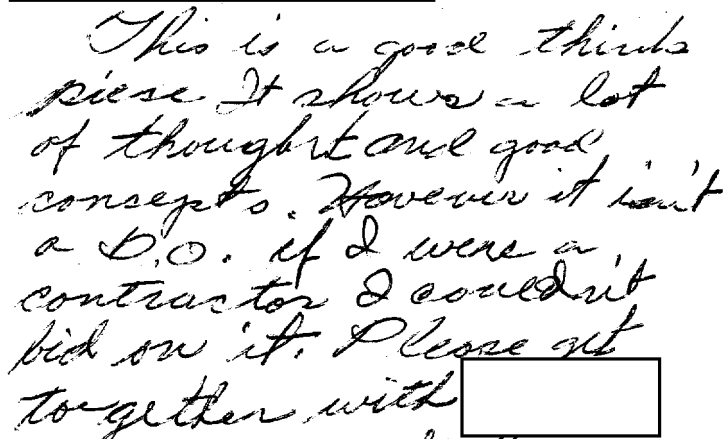 This is a good think
piese It shows a lot
of thought and good
concepts. However it isn't
a D.O. if I were a
contractor I couldn't
bid on it. Please get
together with